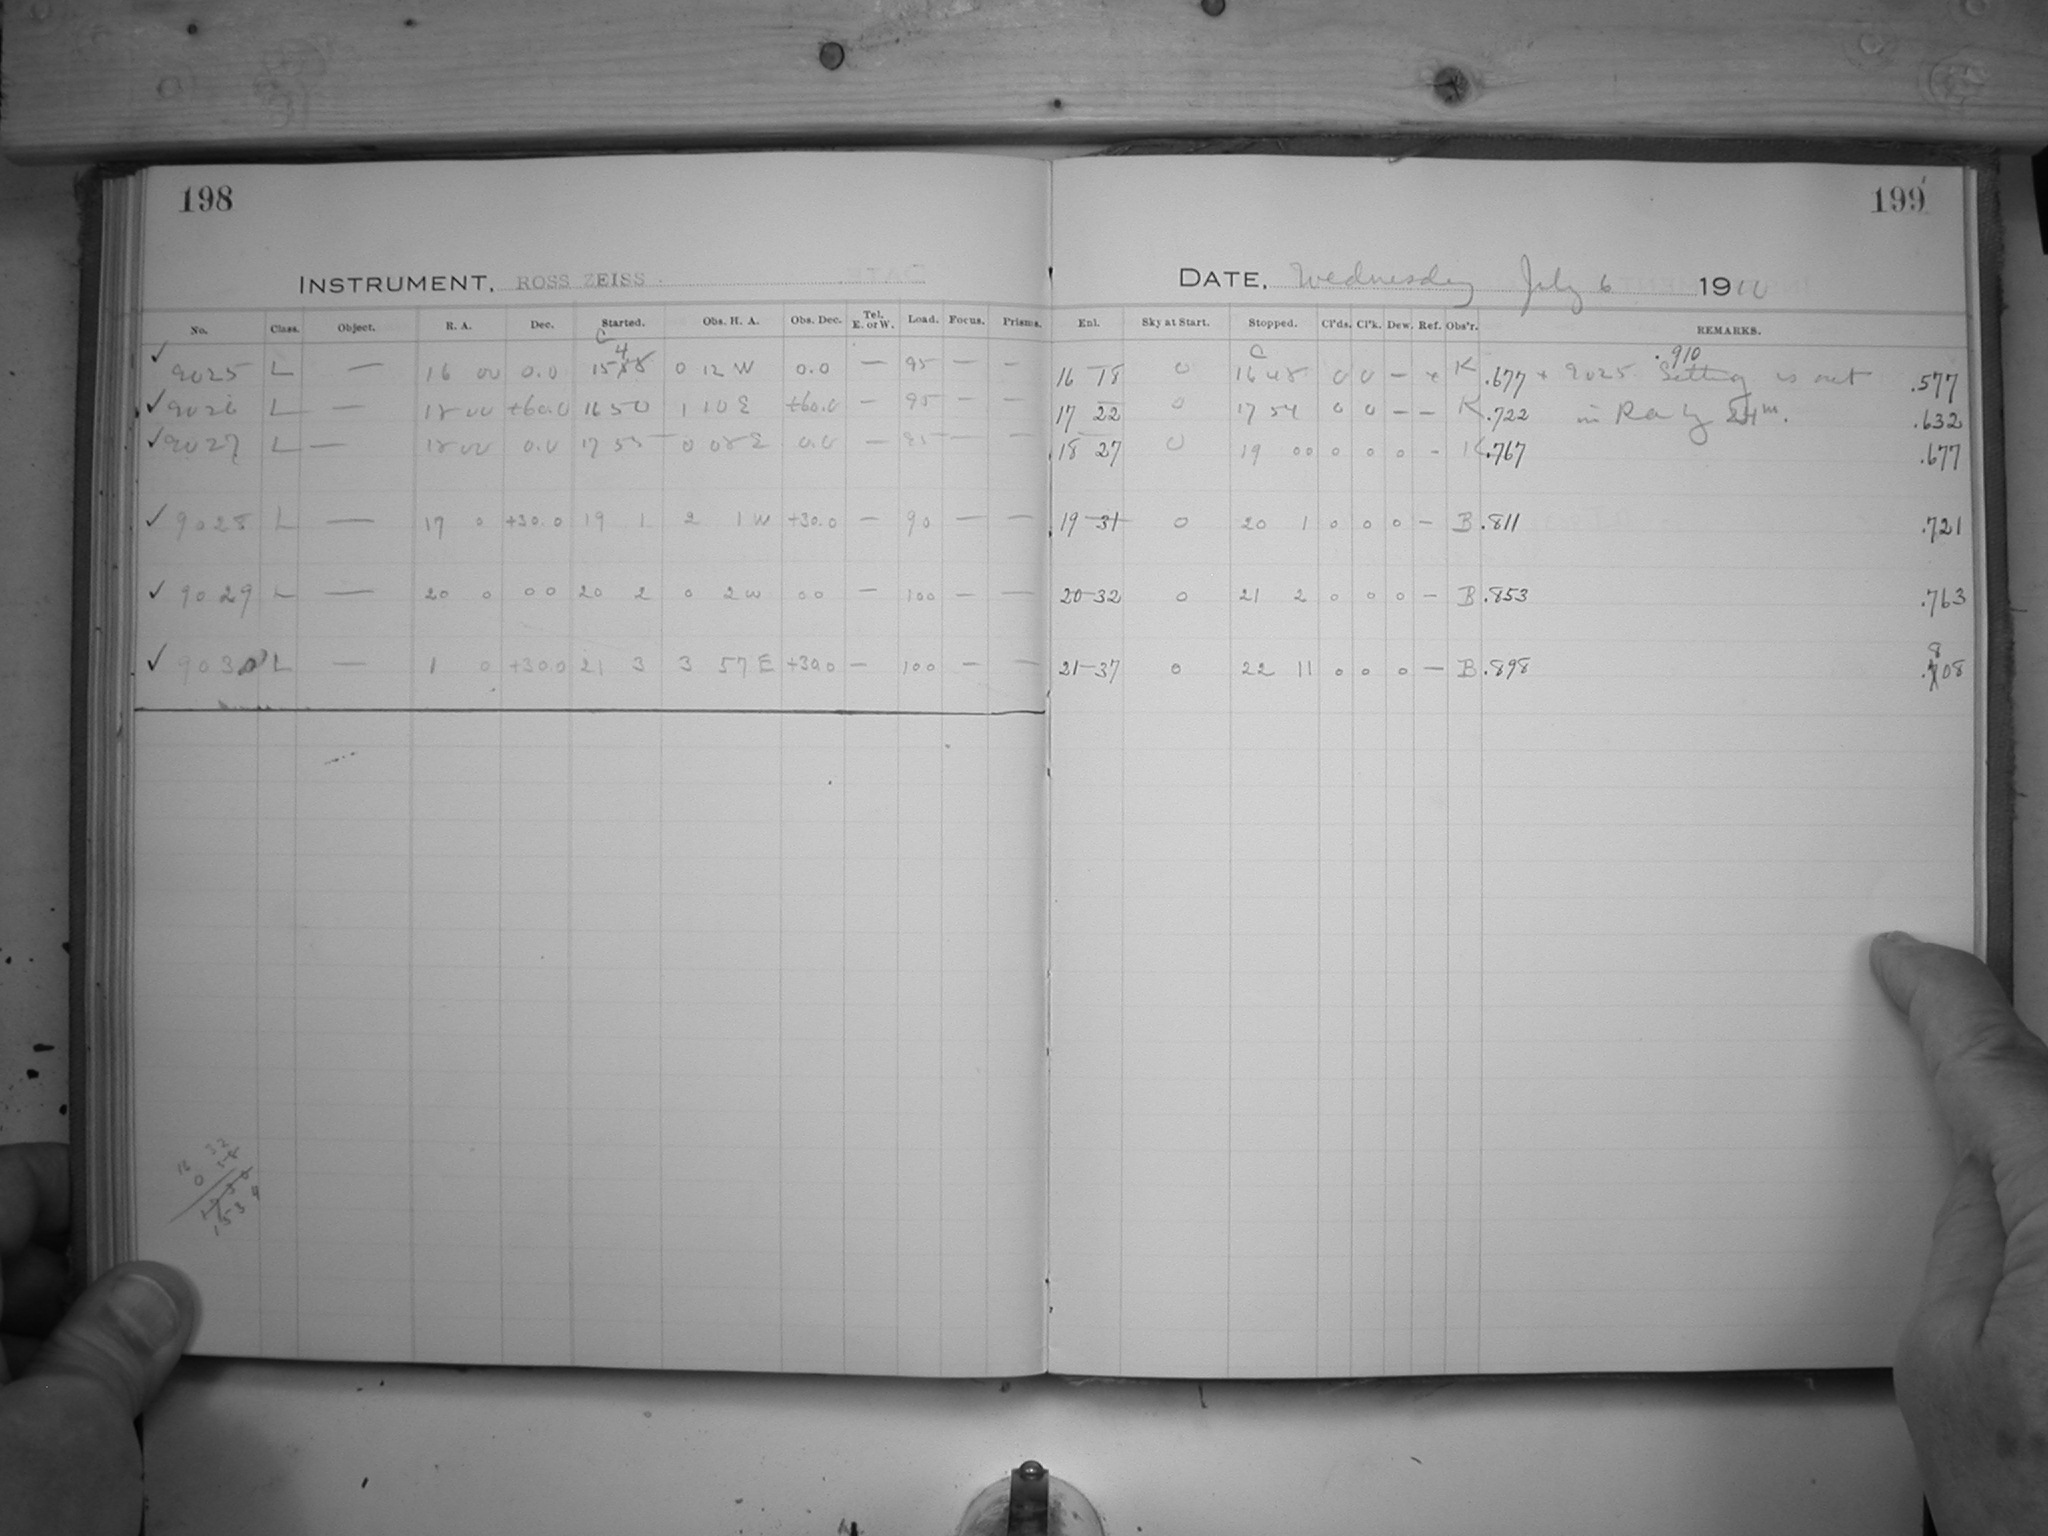 198
199
INSTRUMENT, ROSS ZEISS
DATE, Wednesday July 6 1910
No. Class. Object. R. A. Dec. Started. Obs. H. A. Obs. Dec. Tel. E. or W. Load. Focus. Prisms. Enl. Sky at Start. Stopped. Cl'ds. Cl'k. Dew. Ref. Obs'r. REMARKS.
✓ 9025 L — 16 00 0.0 0 12 W 0.0 — 95 — — 16 18 0 16 48 0 0 — K .677 + 9025 Setting is out .577
.910
✓ 9026 L — 18 00 +60.0 16 50 1 10 E +60.0 — 95 — — 17 22 0 17 54 0 0 — — K .722 in Ra by 24m. .632
✓ 9027 L — 18 00 0.0 17 55 0 08 E 0.0 — 95 — — 18 27 0 19 00 0 0 0 - K .767 .677
✓ 9028 L — 17 0 +30.0 19 1 2 1 W +30.0 — 90 — — 19 31 0 20 1 0 0 0 — B .811 .721
✓ 9029 L — 20 0 00 20 2 0 2 W 00 — 100 — — 20-32 0 21 2 0 0 0 — B .853 .763
✓ 9030 L — 1 0 +30.0 21 3 3 57 E +30.0 — 100 — — 21-37 0 22 11 0 0 0 — B .898 .808